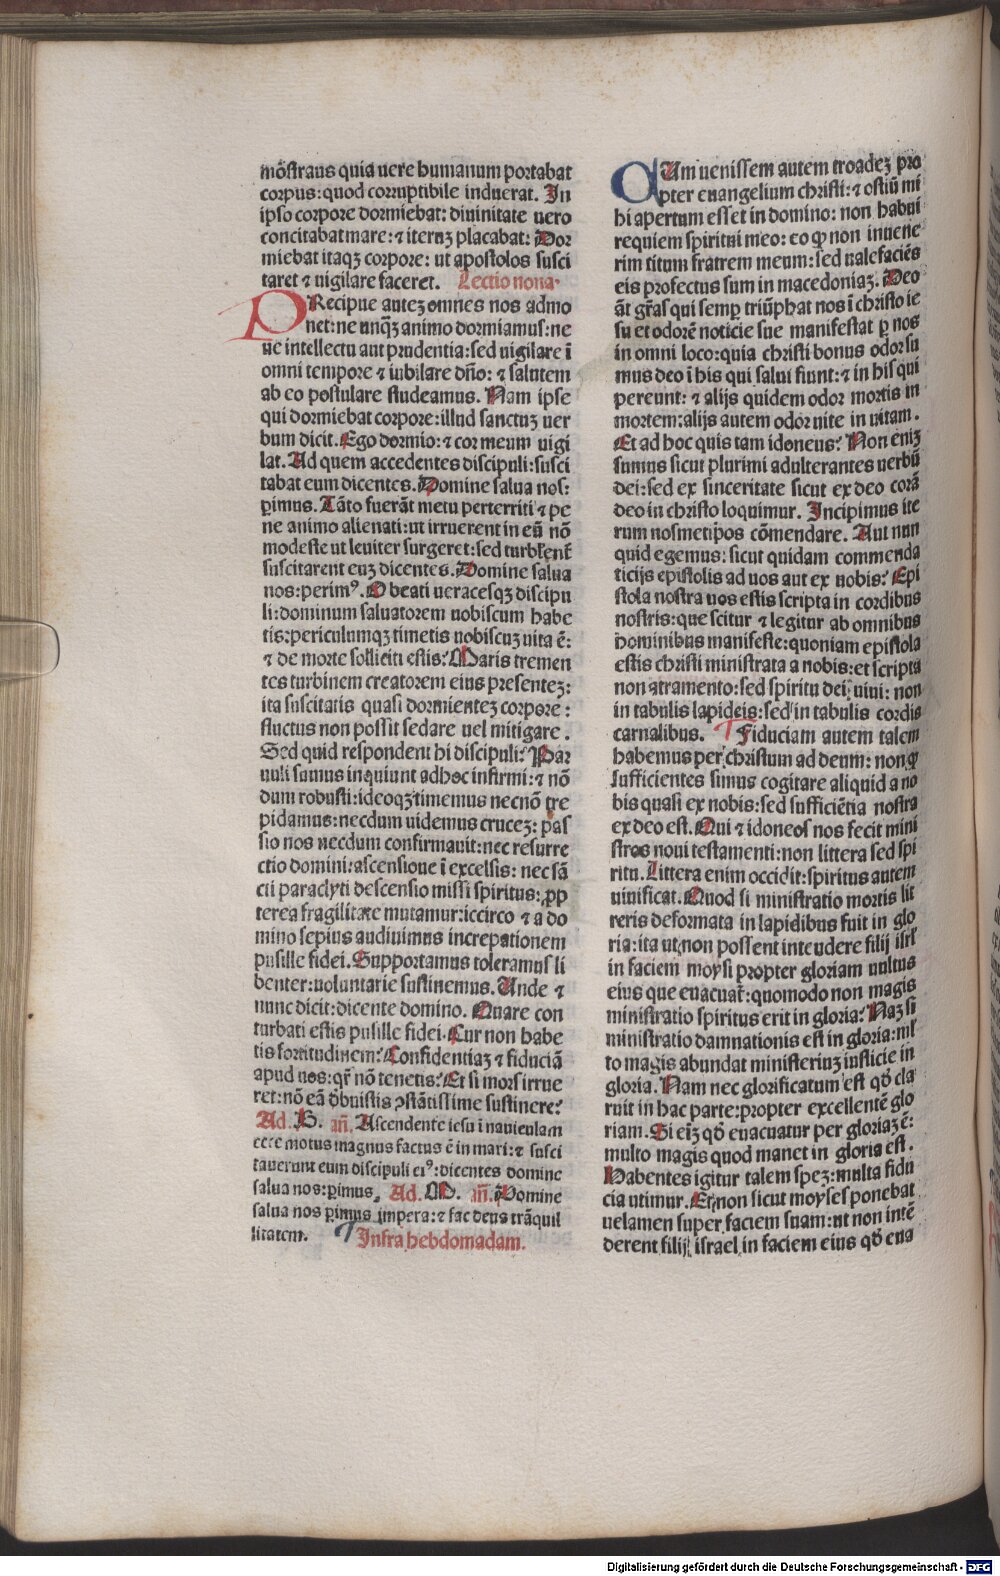 mōstrans quia uere humanum portabat
corpus: quod corruptibile induerat. In
ipso corpore dormiebat: diuinitate uero
concitabat mare: ⁊ iteruꝫ placabat: Dor
miebat itaqꝫ corpore: ut apostolos susci
taret ⁊ uigilare faceret. Lectio nona.
PRecipue auteꝫ omnes nos admo
net: ne unqꝫ animo dormiamus: ne
ue intellectu aut prudentia: sed uigilare ī
omni tempore ⁊ iubilare dño: ⁊ salutem
ab eo postulare studeamus. Nam ipse
qui dormiebat corpore: illud sanctuꝫ uer
bum dicit. Ego dormio: ⁊ cor meum uigi
lat. Ad quem accedentes discipuli: susci
tabat eum dicentes. Domine salua nos:
ꝑimus. Tāto fuerāt metu perterriti ⁊ pe
ne animo alienati: ut irruerent in eū nō
modeste ut leuiter surgeret: sed turbr̄ent
suscitarent euꝫ dicentes. Domine salua
nos: perimꝰ. O beati ueracesqꝫ discipu
li: dominum saluatorem uobiscum habe
tis: periculumqꝫ timetis uobiscuꝫ uita ē:
⁊ de morte solliciti estis? Maris tremen
tes turbinem creatorem eius presenteꝫ:
ita suscitatis quasi dormienteꝫ corpore:
fluctus non possit sedare uel mitigare.
Sed quid respondent hi discipuli? Par
uuli sumus inquiunt adhoc infirmi: ⁊ nō
dum robusti: ideoqꝫ timemus necnō tre
pidamus: necdum uidemus cruceꝫ: pas
sio nos necdum confirmauit: nec resurre
ctio domini: ascensione ī excelsis: nec sā
cti paraclyti descensio missi spiritus: ꝓp
terea fragilitate mutamur: iccirco ⁊ a do
mino sepius audiuimus increpationem
pusille fidei. Supportamus toleramus li
benter: uoluntarie sustinemus. Unde ⁊
nunc dicit: dicente domino. Quare con
turbati estis pusille fidei. Cur non habe
tis fortitudinem? Confidentiaꝫ ⁊ fiduciā
apud uos: qr̄ nō tenetis? Et si mors irrue
ret: nō eā ꝺbuistis ꝯstātissime sustinere?
Ad. B. añ. Ascendente iesu ī nauiculam
ecce motus magnus factus ē in mari: ⁊ susci
tauerunt eum discipuli eiꝰ: dicentes domine
salua nos: ꝑimus. Ad. M. añ. Domine
salua nos ꝑimus impera: ⁊ fac deus trāquil
litatem. Infra hebdomadam.
CUm uenissem autem troadeꝫ pro
pter euangelium christi: ⁊ ostiū mi
hi apertum esset in domino: non habui
requiem spiritui meo: eo ꝙ non inuene
rim titum fratrem meum: sed ualefaciēs
eis profectus sum in macedoniaꝫ. Deo
āt gr̄as qui semꝑ triūphat nos ī christo ie
su et odorē noticie sue manifestat ꝑ nos
in omni loco: quia christi bonus odor su
mus deo ī his qui salui fiunt: ⁊ in his qui
pereunt: ⁊ alijs quidem odor mortis in
mortem: alijs autem odor uite in uitam.
Et ad hoc quis tam idoneus? Non eniꝫ
sumus sicut plurimi adulterantes uerbū
dei: sed ex sinceritate sicut ex deo corā
deo in christo loquimur. Incipimus ite
rum nosmetipos cōmendare. Aut nun
quid egemus: sicut quidam commenda
ticijs epistolis ad uos aut ex nobis? Epi
stola nostra uos estis scripta in cordibus
nostris: que scitur ⁊ legitur ab omnibus
hominibus manifeste: quoniam epistola
estis christi ministrata a nobis: et scripta
non atramento: sed spiritu dei uiui: non
in tabulis lapideis: sed in tabulis cordis
carnalibus. Fiduciam autem talem
habemus per christum ad deum: non ꝙ
sufficientes simus cogitare aliquid a no
bis quasi ex nobis: sed sufficiētia nostra
ex deo est. Qui ⁊ idoneos nos fecit mini
stros noui testamenti: non littera sed spi
ritu. Littera enim occidit: spiritus autem
uiuificat. Quod si ministratio mortis lit
teris deformata in lapidibus fuit in glo
ria: ita ut non possent intendere filij isrl̄
in faciem moysi propter gloriam uultus
eius que euacuat̄: quomodo non magis
ministratio spiritus erit in gloria? Naꝫ si
ministratio damnationis est in gloria: ml̄
to magis abundat ministeriuꝫ iusticie in
gloria. Nam nec glorificatum est qđ cla
ruit in hac parte: propter excellentē glo
riam. Si eiꝫ qđ euacuatur per gloriaꝫ ē:
multo magis quod manet in gloria est.
Habentes igitur talem speꝫ: multa fidu
cia utimur. Et non sicut moyses ponebat
uelamen super faciem suam: ut non intē
derent filij israel in faciem eius qđ eua
Digitalisierung gefördert durch die Deutsche Forschungsgemeinschaft - DFG